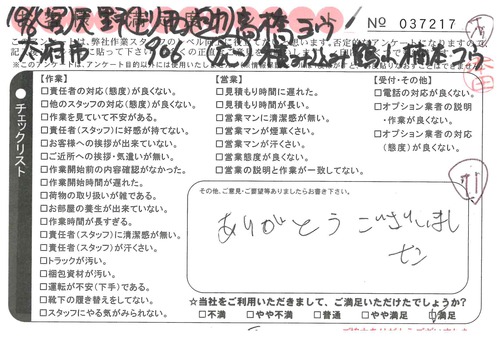 No 037217
【作業】
□責任者の対応(態度)が良くない。
□他のスタッフの対応(態度)が良くない。
□作業を見ていて不安がある。
□責任者(スタッフ)に好感が持てない。
□お客様への挨拶が出来ていない。
□ご近所への挨拶・気遣いが無い。
□作業開始前の内容確認がなかった。
□作業開始時間が遅れた。
□荷物の取り扱いが雑である。
□お部屋の養生が出来ていない。
□作業時間が長すぎる。
□責任者(スタッフ)に清潔感が無い。
□責任者(スタッフ)が汗くさい。
□トラックが汚い。
□梱包資材が汚い。
□運転が不安(下手)である。
□靴下の履き替えをしてない。
□スタッフにやる気がみられない。
【営業】
□見積もり時間に遅れた。
□見積もり時間が長い。
□営業マンに清潔感が無い。
□営業マンが煙草くさい。
□営業マンが汗くさい。
□営業態度が良くない。
□営業の説明と作業が一致してない。
【受付・その他】
□電話の対応が良くない。
□オプション業者の説明
・作業が良くない。
□オプション業者の対応
(態度)が良くない。
チェックリスト
その他、ご意見・ご要望等ありましたらお書き下さい。
ありがとうございまし
☆当社をご利用いただきまして、ご満足いただけたでしょうか?
□不満 □やや不満 □普通 □やや満足 □満足